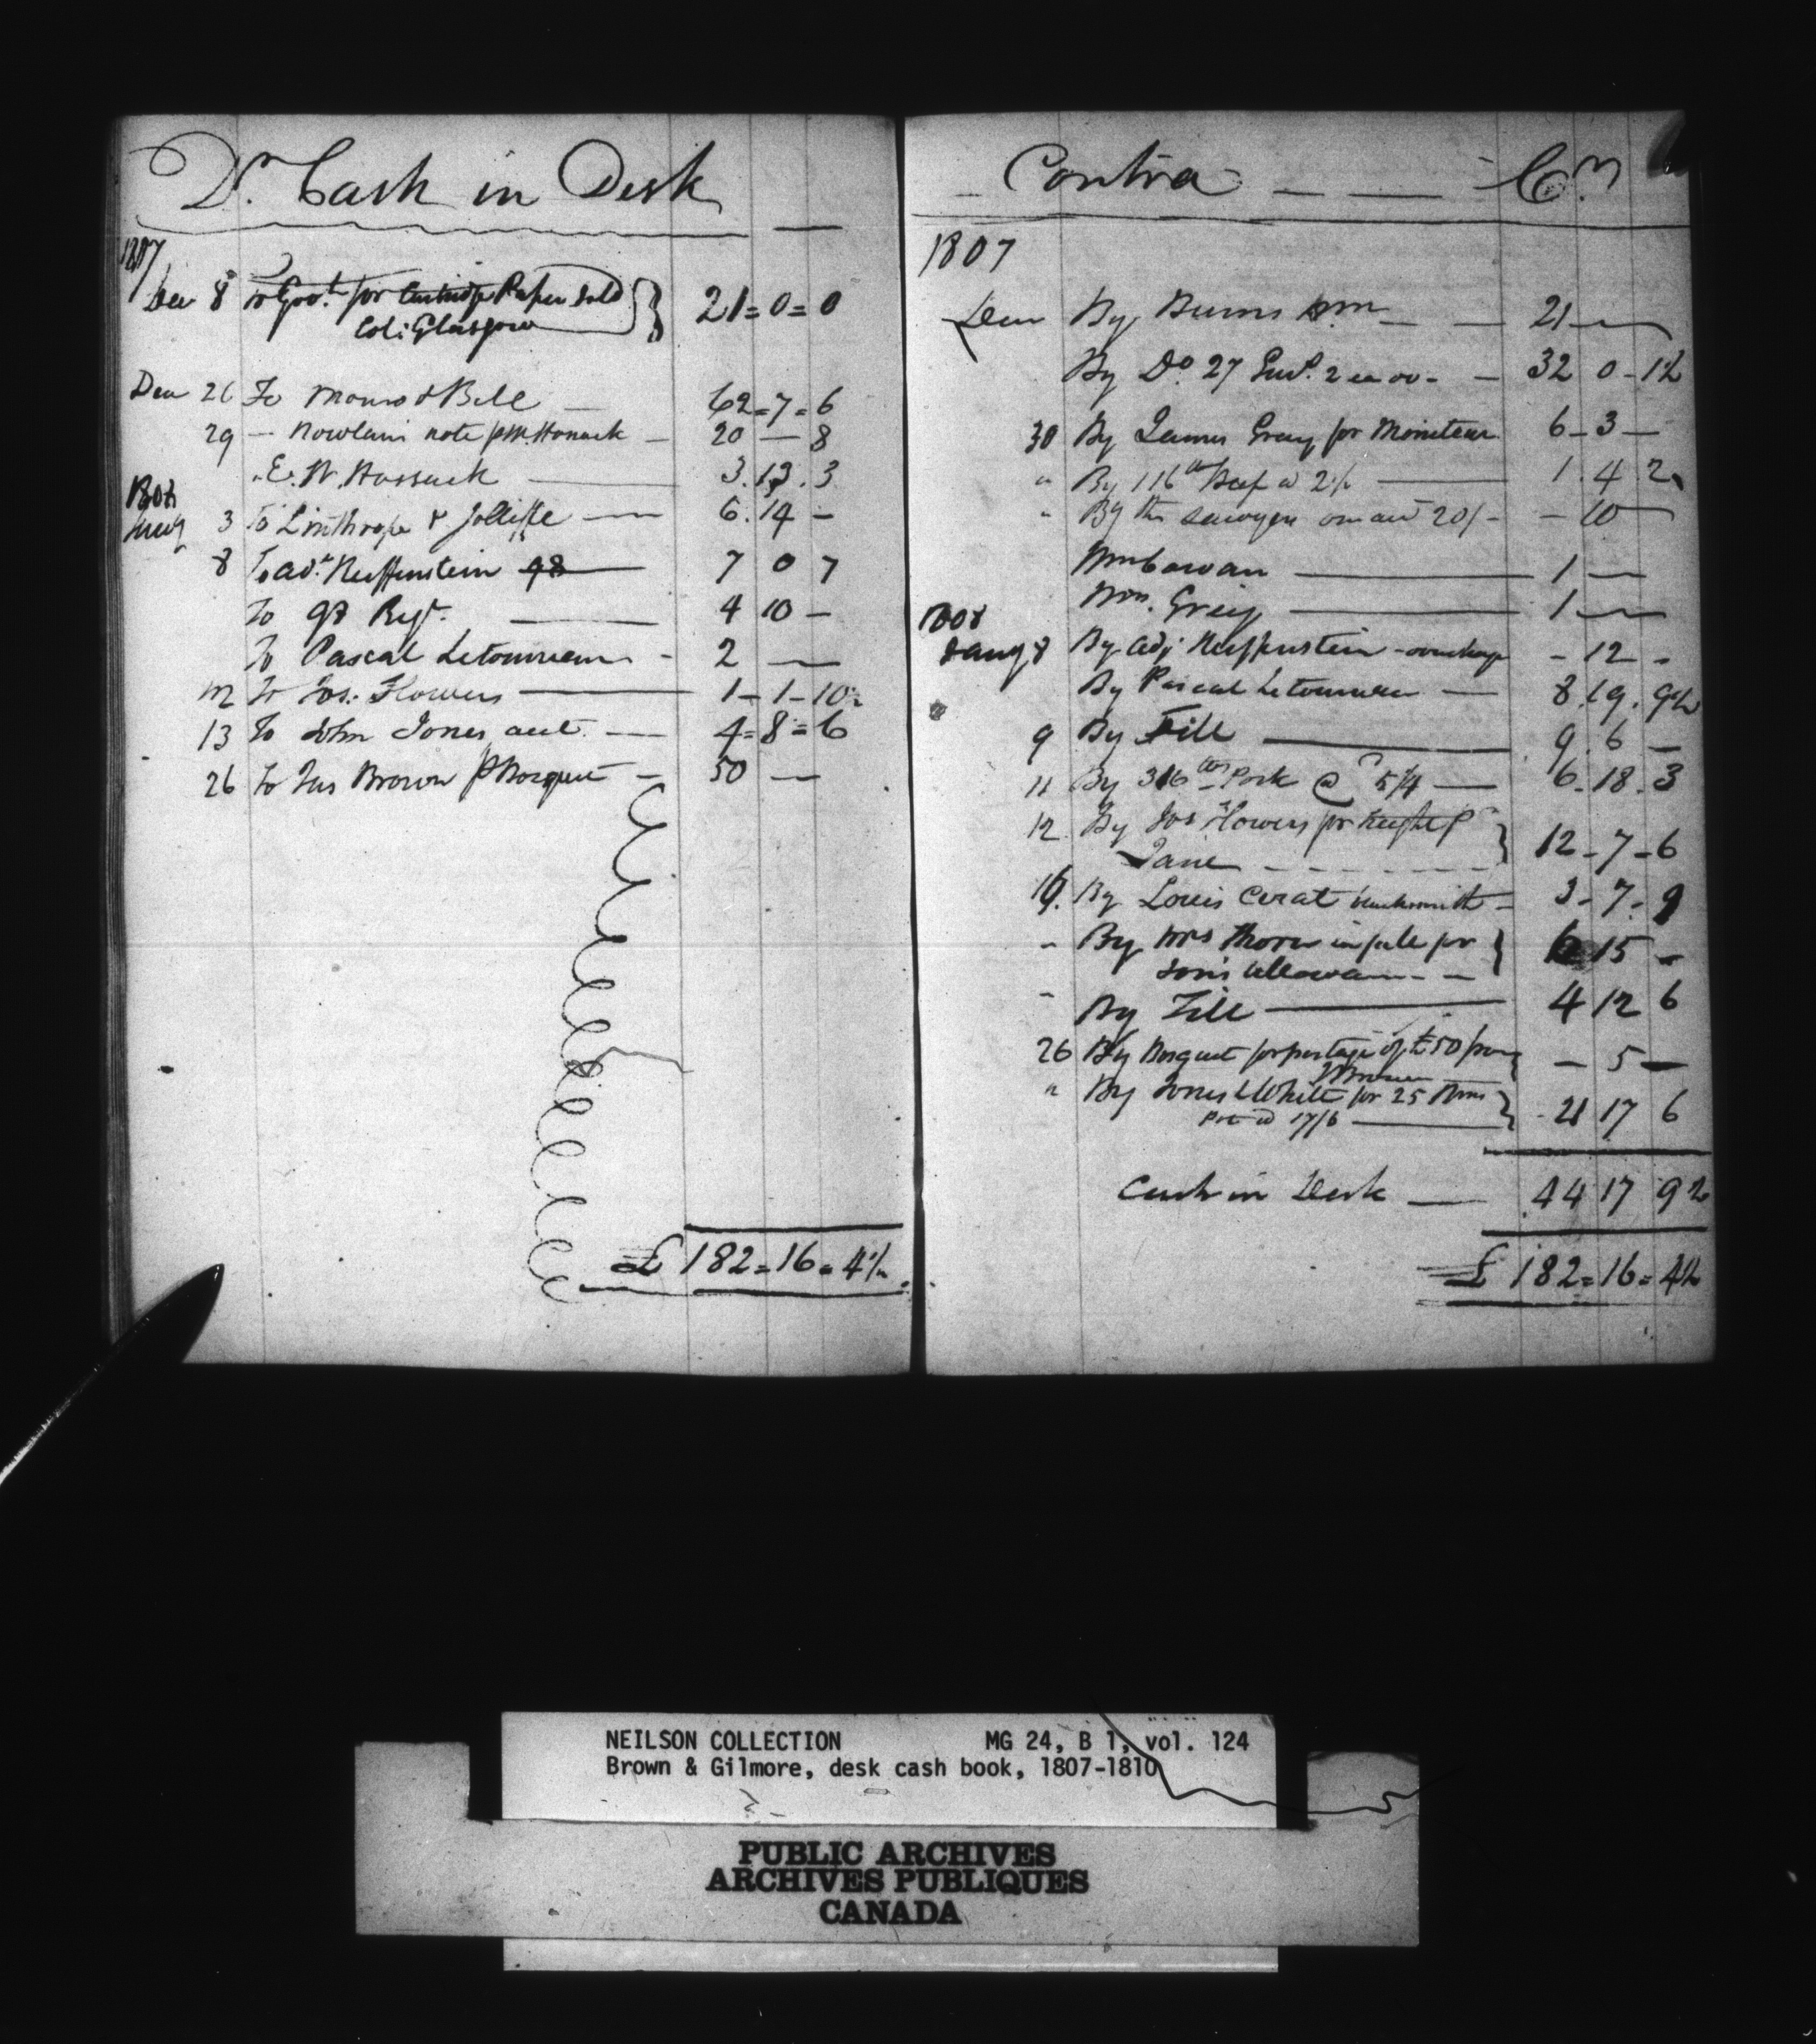 Dr. Cash in Desk
1807
Dec 8 To Govt. for Cartridge Paper sold
Col: Glasgow 21=0=0
Decr 26 To Monro & Bell 62=7=6
29 — Nowlan's note — 20 — 8
E. W. Hossack — 3.13.3
1808
Jany 3 To Linthrope & Jolliffe — 6.14 -
8 To Adjt. Reiffenstein 98 7 0 7
To 98 Regt. — 4 10 -
To Pascal Letourneau - 2 —
12 To Jos: Flowers — 1-1-10½
13 To John Jones auct. — 4=8=6
26 To Jas Brown p Bosquet — 50 —
£ 182=16=4½
Contra — — Cr.
1807
Decr By Burns — 21 —
By Do. 27 — 32 0-1½
30 By James Gray for Moniteur 6-3-
" By 116 lb Beef @ 2½ — 1.4.2
" By the Sawyers on acct 20/- - 10 —
Wm Cowan — 1 —
Mrs. Gray — 1 —
1808
Jany 8 By Adj Reiffenstein - overcharge - 12 -
By Pascal Letourneau — 8.19.9½
9 By Till — 9.6 -
11 By 316 lbs Pork @ 5¼ — 6-18-3
12 By Jos Flowers for freight p
Jane 12-7-6
16. By Louis Cerat blacksmith - 3-7-9
" By Mrs Thorn in full for
son's allowance - - 6 15 -
" By Till — 4 12 6
26 By Bosquet for portage of £50 from
J Brown — 5 —
" By Jones & White for 25 Rms
Pot @ 17/6 — 21 17 6
Cash in Desk — 44 17 9½
£ 182=16=4½
NEILSON COLLECTION MG 24, B 1, vol. 124
Brown & Gilmore, desk cash book, 1807-1810
PUBLIC ARCHIVES
ARCHIVES PUBLIQUES
CANADA